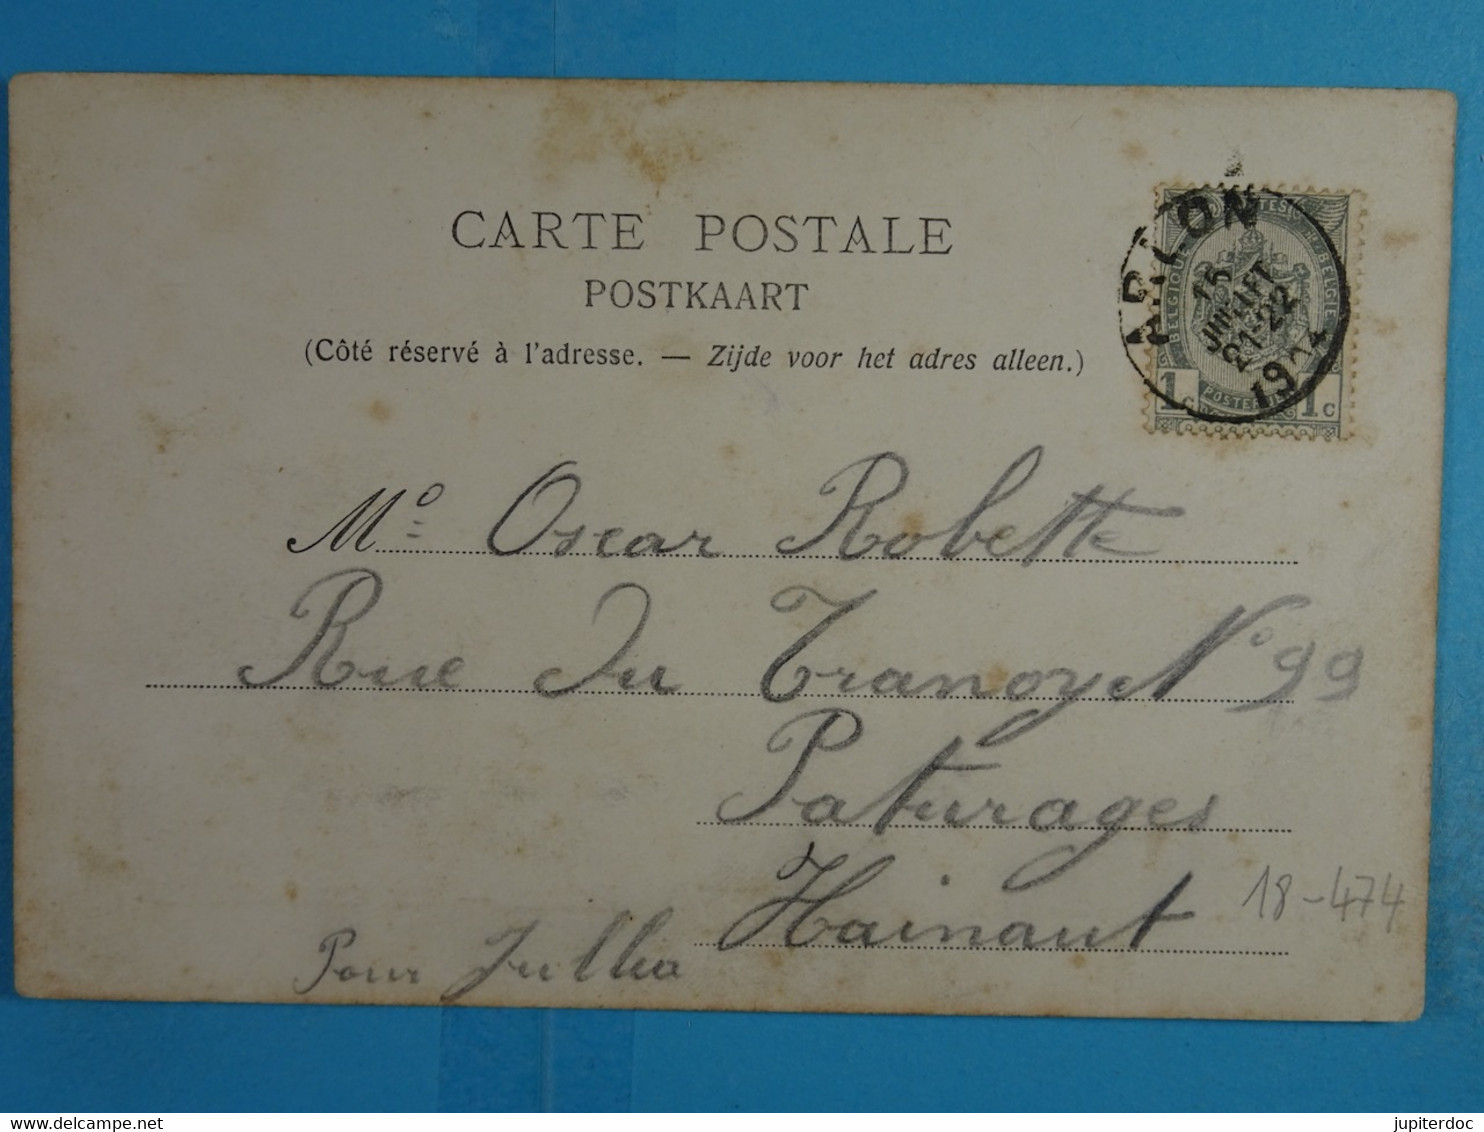 CARTE POSTALE
POSTKAART
(Côté réservé à l'adresse. — Zijde voor het adres alleen.)
ARLON
15
JUILLET
21-22
1904
BELGIQUE
BELGIE
POSTERIJEN
1 c 1 c
Mº Oscar Robette
Rue Du Tranoy Nº 99
Paturages
Hainaut
18-474
Pour Jullia
delcampe.net
jupiterdoc